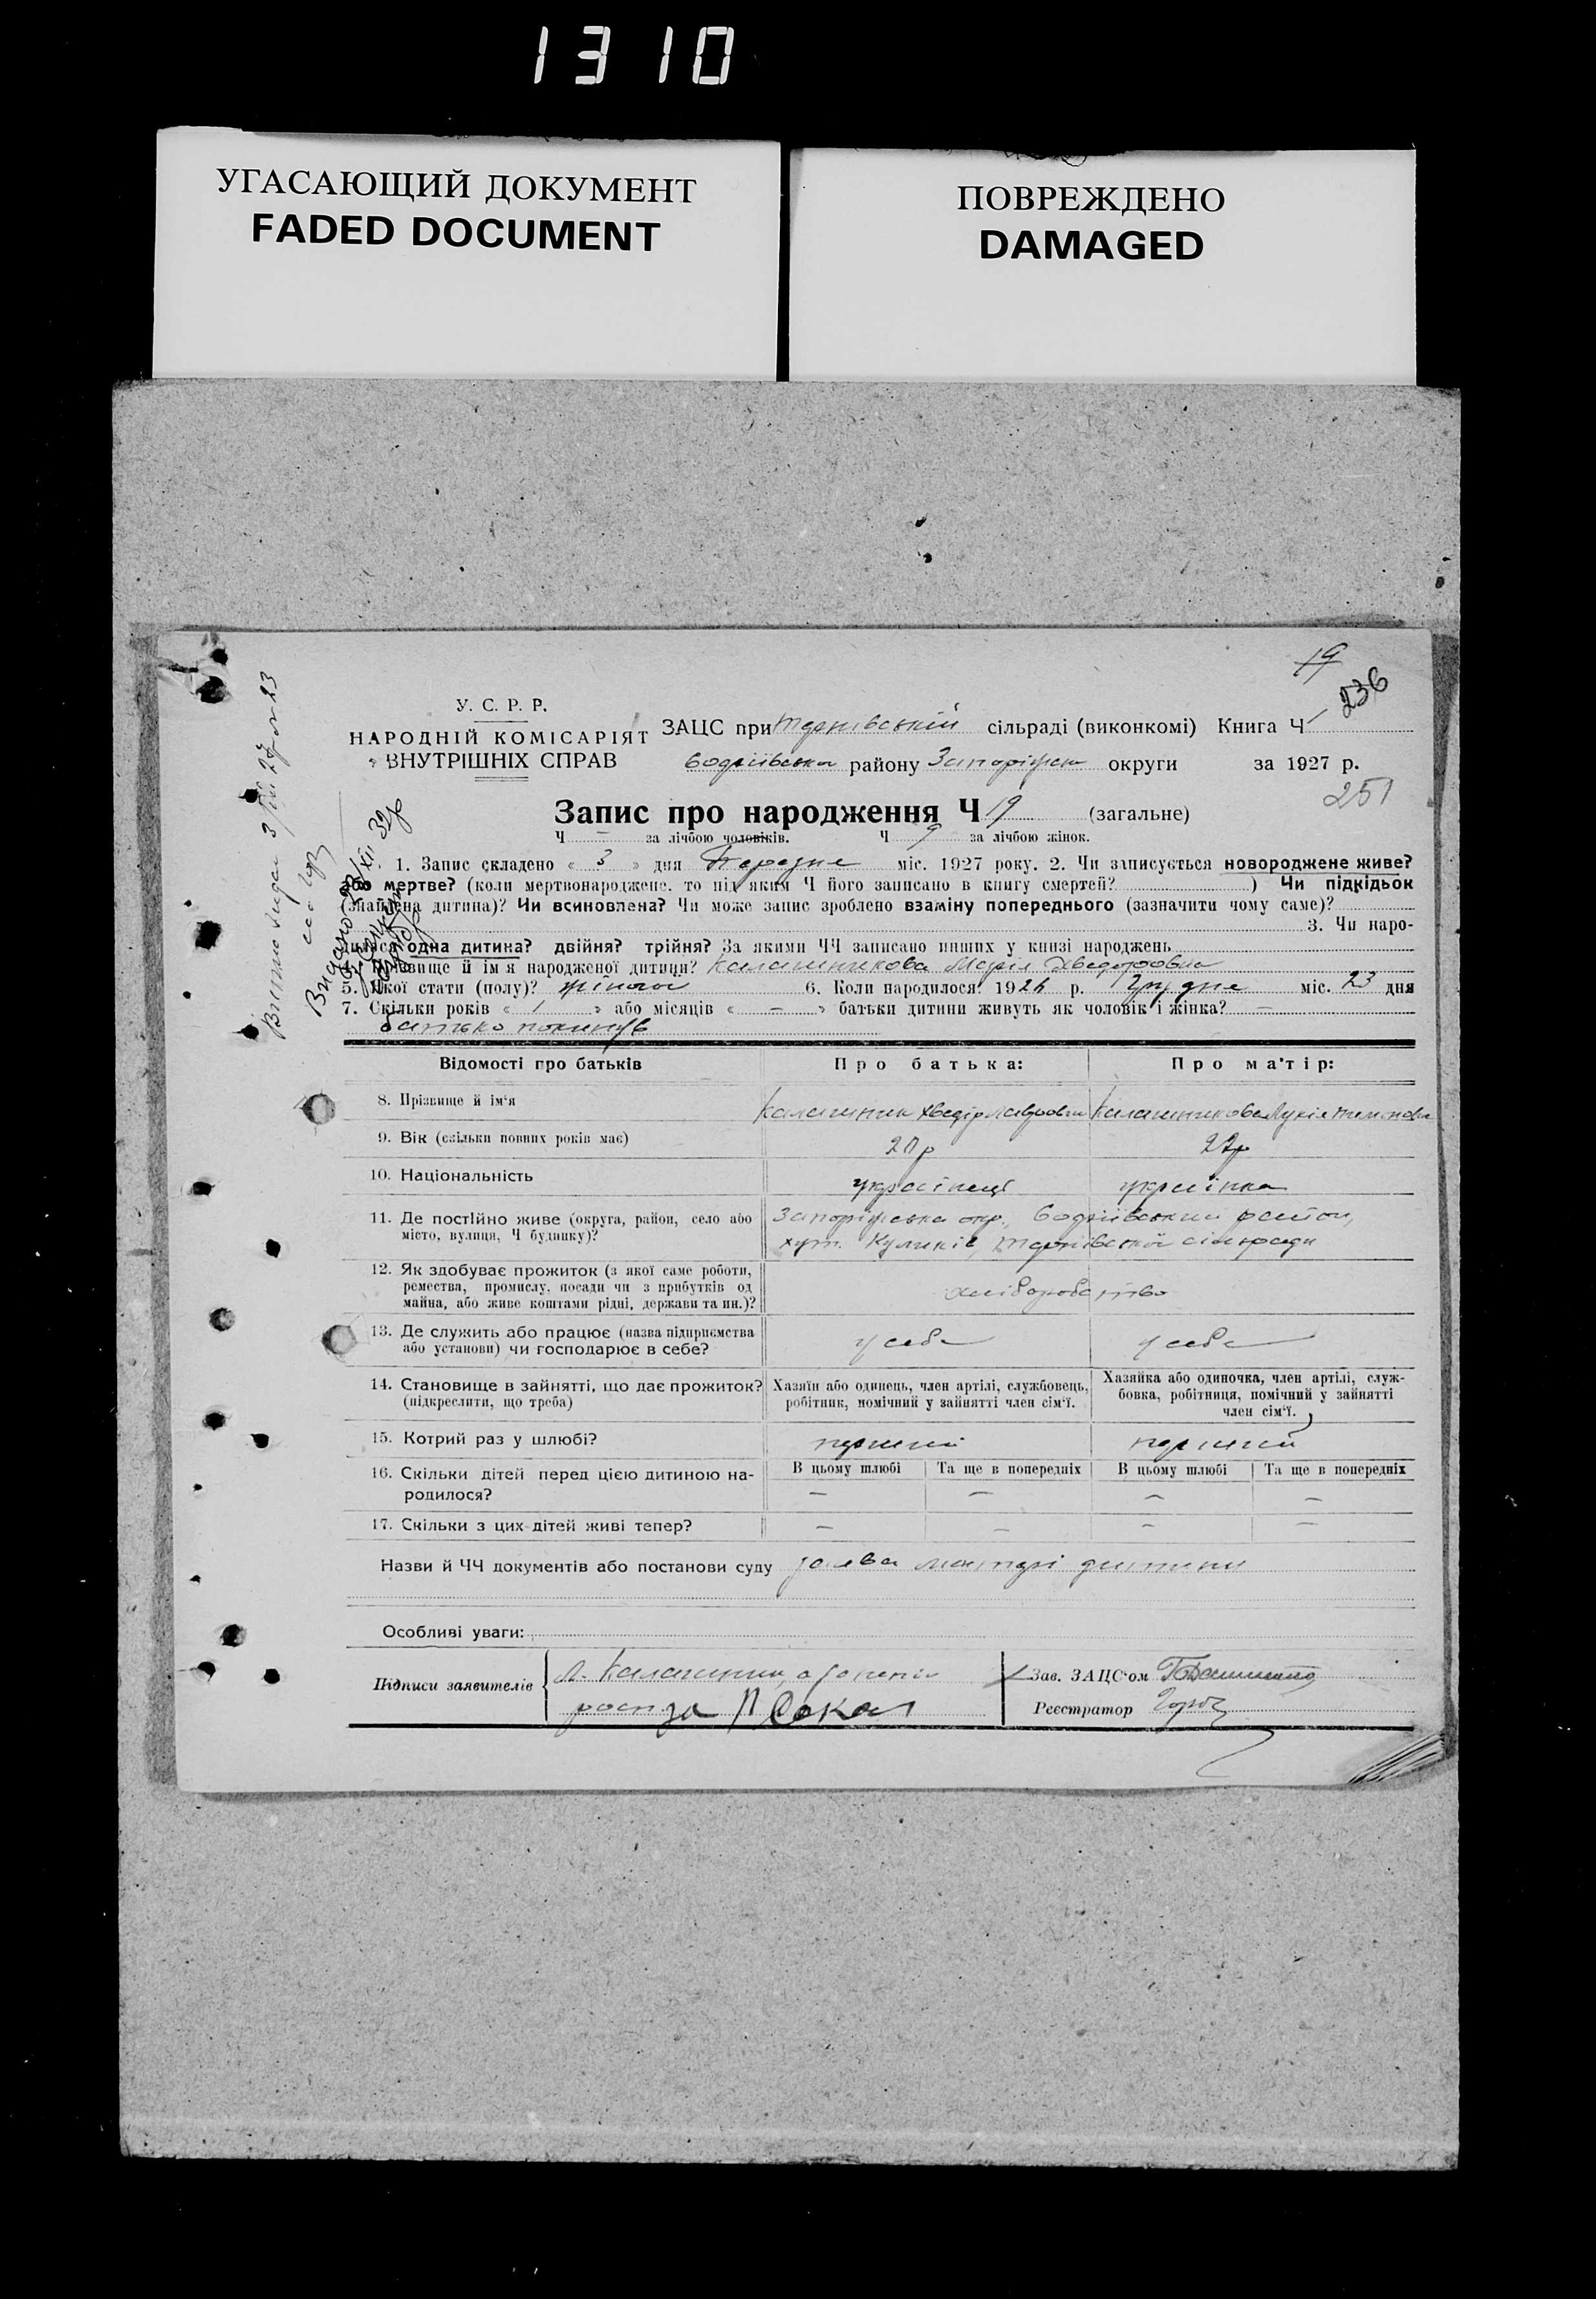 1310
УГАСАЮЩИЙ ДОКУМЕНТ
FADED DOCUMENT
ПОВРЕЖДЕНО
DAMAGED
19
236
У. С. Р. Р.
НАРОДНІЙ КОМІСАРІЯТ
ВНУТРІШНІХ СПРАВ
ЗАЦС при сільраді (виконкомі) Книга Ч
району округи за 1927 р.
251
Запис про народження Ч 19 (загальне)
Ч — за лічбою чоловіків. Ч 9 за лічбою жінок.
1. Запис складено « 3 » дня міс. 1927 року. 2. Чи записується новороджене живе?
або мертве? (коли мертвонароджене. то під яким Ч його записано в книгу смертей? ) Чи підкідьок
(знайдена дитина)? Чи всиновлена? Чи може запис зроблено взаміну попереднього (зазначити чому саме)?
3. Чи наро-
дилася одна дитина? двійня? трійня? За якими ЧЧ записано инших у книзі народжень
4. Прізвище й ім'я народженої дитини? Калашникова Марія Хведоровна
5. Якої стати (полу)? жіночої 6. Коли народилося? 1926 р. Грудня міс. 23 дня
7. Скільки років « 1 » або місяців « — » батьки дитини живуть як чоловік і жінка? —
батько покинув
Відомості про батьків Про батька: Про матір:
8. Прізвище й ім'я Калашник Хведір Калашникова
9. Вік (скільки повних років має) 20р 22р
10. Національність українець українка
11. Де постійно живе (округа, район, село або Запоріжська окр., район,
місто, вулиця, Ч будинку)? хут. Куликів, сільради
12. Як здобуває прожиток (з якої саме роботи,
ремества, промислу, посади чи з прибутків од
майна, або живе коштами рідні, держави та ин.)? хліборобство
13. Де служить або працює (назва підприємства
або установи) чи господарює в себе? у себе у себе
14. Становище в зайнятті, що дає прожиток? Хазяїн або одинець, член артілі, службовець, Хазяйка або одиночка, член артілі, служ-
(підкреслити, що треба) робітник, помічний у зайнятті член сім'ї. бовка, робітниця, помічний у зайнятті
член сім'ї.
15. Котрий раз у шлюбі? перший перший
16. Скільки дітей перед цією дитиною на- В цьому шлюбі Та ще в попередніх В цьому шлюбі Та ще в попередніх
родилося? — — — —
17. Скільки з цих дітей живі тепер? — — — —
Назви й ЧЧ документів або постанови суду заява матері дитини
Особливі уваги:
Підписи заявителів Л. Калашник, Зав. ЗАЦС'ом
за Реєстратор